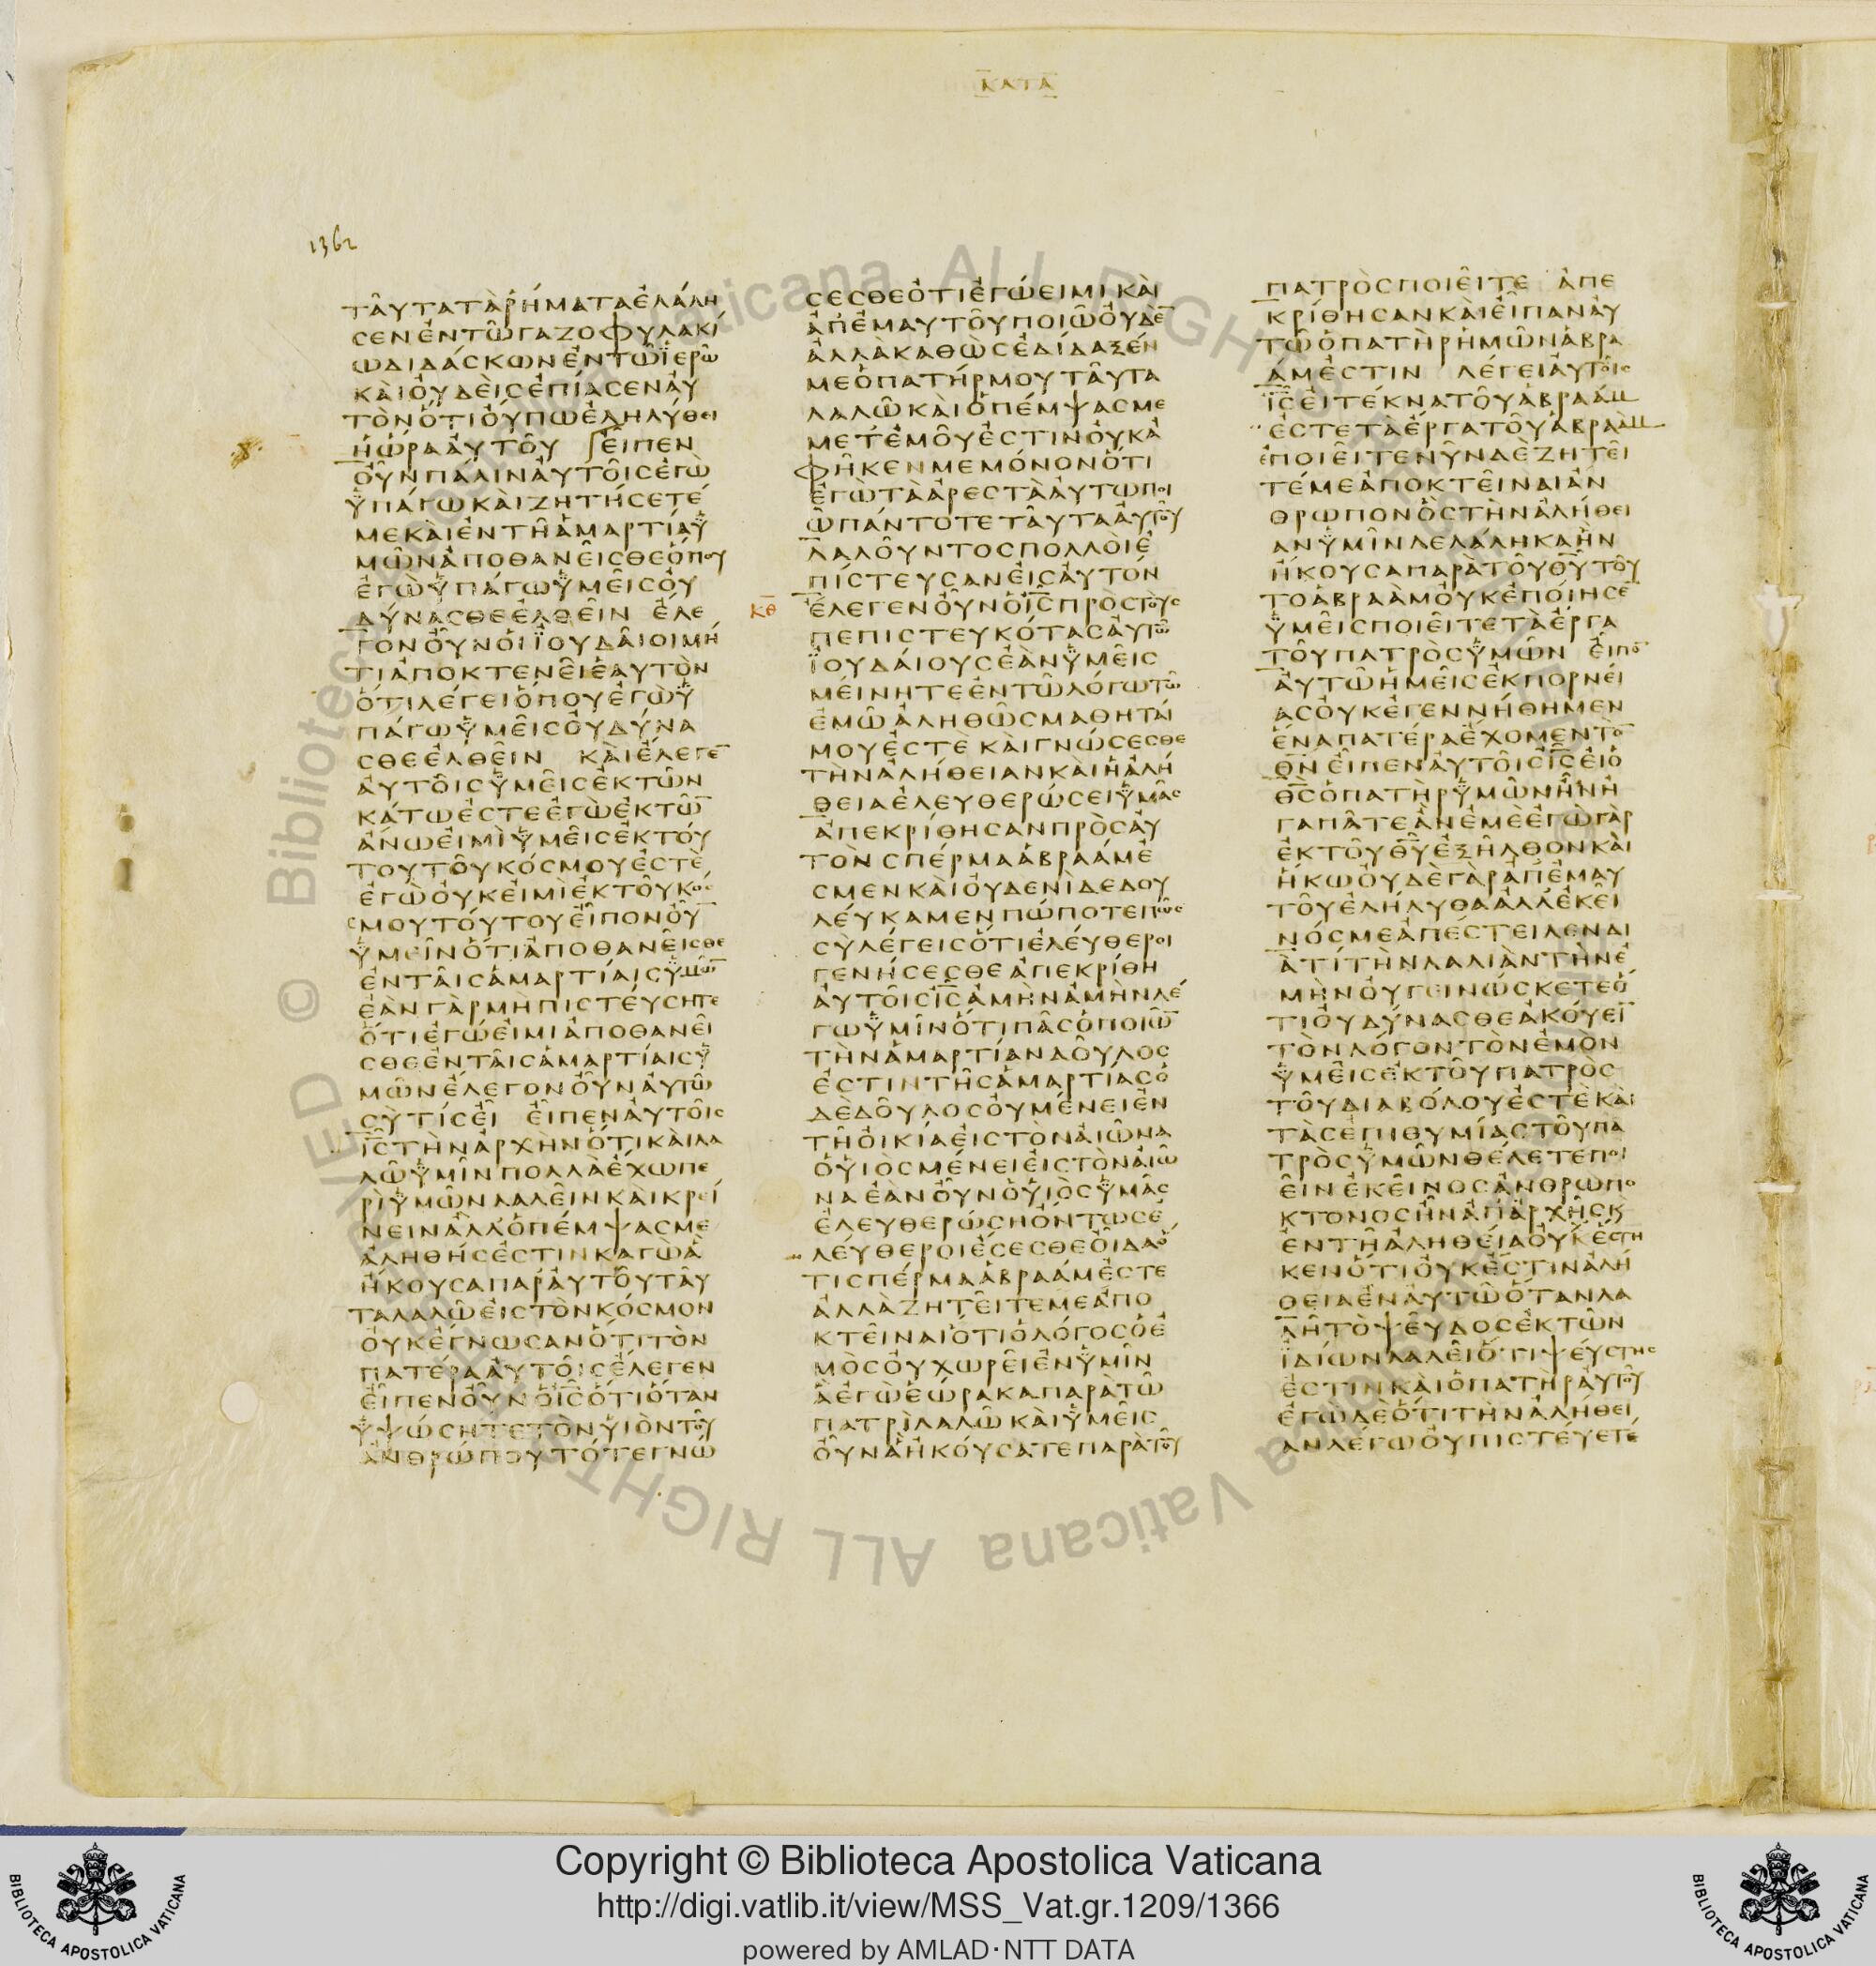 ΚΑΤΑ
1362
ΤΑΥΤΑΤΑΡΗΜΑΤΑΕΛΑΛΗ
ϹΕΝΕΝΤΩΓΑΖΟΦΥΛΑΚΙ
ΩΔΙΔΑϹΚΩΝΕΝΤΩΪΕΡΩ
ΚΑΙΟΥΔΕΙϹΕΠΙΑϹΕΝΑΥ
ΤΟΝΟΤΙΟΥΠΩΕΛΗΛΥΘΕΙ
ΗΩΡΑΑΥΤΟΥ ΕΙΠΕΝ
ΟΥΝΠΑΛΙΝΑΥΤΟΙϹΕΓΩ
ΫΠΑΓΩΚΑΙΖΗΤΗϹΕΤΕ
ΜΕΚΑΙΕΝΤΗΑΜΑΡΤΙΑΫ
ΜΩΝΑΠΟΘΑΝΕΙϹΘΕΟΠΟΥ
ΕΓΩΫΠΑΓΩΫΜΕΙϹΟΥ
ΔΥΝΑϹΘΕΕΛΘΕΙΝ ΕΛΕ
ΓΟΝΟΥΝΟΙΪΟΥΔΑΙΟΙΜΗ
ΤΙΑΠΟΚΤΕΝΕΙΕΑΥΤΟΝ
ΟΤΙΛΕΓΕΙΟΠΟΥΕΓΩΫ
ΠΑΓΩΫΜΕΙϹΟΥΔΥΝΑ
ϹΘΕΕΛΘΕΙΝ ΚΑΙΕΛΕΓΕ̅
ΑΥΤΟΙϹΫΜΕΙϹΕΚΤΩΝ
ΚΑΤΩΕϹΤΕΕΓΩΕΚΤΩ̅
ΑΝΩΕΙΜΙΫΜΕΙϹΕΚΤΟΥ
ΤΟΥΤΟΥΚΟϹΜΟΥΕϹΤΕ
ΕΓΩΟΥΚΕΙΜΙΕΚΤΟΥΚΟ
ϹΜΟΥΤΟΥΤΟΥΕΙΠΟΝΟΥ̅
ΫΜΕΙΝΟΤΙΑΠΟΘΑΝΕΙϹΘΕ
ΕΝΤΑΙϹΑΜΑΡΤΙΑΙϹΫΜΩ̅
ΕΑΝΓΑΡΜΗΠΙϹΤΕΥϹΗΤΕ
ΟΤΙΕΓΩΕΙΜΙΑΠΟΘΑΝΕΙ
ϹΘΕΕΝΤΑΙϹΑΜΑΡΤΙΑΙϹΫ
ΜΩΝΕΛΕΓΟΝΟΥΝΑΥΤΩ
ϹΥΤΙϹΕΙ ΕΙΠΕΝΑΥΤΟΙϹ
ΙϹ̅ΤΗΝΑΡΧΗΝΟΤΙΚΑΙΛΑ
ΛΩΫΜΙΝΠΟΛΛΑΕΧΩΠΕ
ΡΙΫΜΩΝΛΑΛΕΙΝΚΑΙΚΡΕΙ
ΝΕΙΝΑΛΛΟΠΕΜΨΑϹΜΕ
ΑΛΗΘΗϹΕϹΤΙΝΚΑΓΩΑ
ΗΚΟΥϹΑΠΑΡΑΥΤΟΥΤΑΥ
ΤΑΛΑΛΩΕΙϹΤΟΝΚΟϹΜΟΝ
ΟΥΚΕΓΝΩϹΑΝΟΤΙΤΟΝ
ΠΑΤΕΡΑΑΥΤΟΙϹΕΛΕΓΕΝ
ΕΙΠΕΝΟΥΝΟΙϹ̅ΟΤΙΟΤΑΝ
ΫΨΩϹΗΤΕΤΟΝΫΙΟΝΤΟΥ
ΑΝΘΡΩΠΟΥΤΟΤΕΓΝΩ
ϹΕϹΘΕΟΤΙΕΓΩΕΙΜΙΚΑΙ
ΑΠΕΜΑΥΤΟΥΠΟΙΩΟΥΔΕ̅
ΑΛΛΑΚΑΘΩϹΕΔΙΔΑΞΕΝ
ΜΕΟΠΑΤΗΡΜΟΥΤΑΥΤΑ
ΛΑΛΩΚΑΙΟΠΕΜΨΑϹΜΕ
ΜΕΤΕΜΟΥΕϹΤΙΝΟΥΚΑ
ΦΗΚΕΝΜΕΜΟΝΟΝΟΤΙ
ΕΓΩΤΑΑΡΕϹΤΑΑΥΤΩΠΟΙ
ΩΠΑΝΤΟΤΕΤΑΥΤΑΑΥΤΟΥ
ΛΑΛΟΥΝΤΟϹΠΟΛΛΟΙΕ
ΠΙϹΤΕΥϹΑΝΕΙϹΑΥΤΟΝ
ΚΘ̅ ΕΛΕΓΕΝΟΥΝΟΙϹ̅ΠΡΟϹΤΟΥϹ
ΠΕΠΙϹΤΕΥΚΟΤΑϹΑΥΤΩ
ΪΟΥΔΑΙΟΥϹΕΑΝΫΜΕΙϹ
ΜΕΙΝΗΤΕΕΝΤΩΛΟΓΩΤΩ
ΕΜΩΑΛΗΘΩϹΜΑΘΗΤΑΙ
ΜΟΥΕϹΤΕΚΑΙΓΝΩϹΕϹΘΕ
ΤΗΝΑΛΗΘΕΙΑΝΚΑΙΗΑΛΗ
ΘΕΙΑΕΛΕΥΘΕΡΩϹΕΙΫΜΑϹ
ΑΠΕΚΡΙΘΗϹΑΝΠΡΟϹΑΥ
ΤΟΝϹΠΕΡΜΑΑΒΡΑΑΜΕ
ϹΜΕΝΚΑΙΟΥΔΕΝΙΔΕΔΟΥ
ΛΕΥΚΑΜΕΝΠΩΠΟΤΕΠΩϹ
ϹΥΛΕΓΕΙϹΟΤΙΕΛΕΥΘΕΡΟΙ
ΓΕΝΗϹΕϹΘΕΑΠΕΚΡΙΘΗ
ΑΥΤΟΙϹΙϹ̅ΑΜΗΝΑΜΗΝΛΕ
ΓΩΫΜΙΝΟΤΙΠΑϹΟΠΟΙΩ̅
ΤΗΝΑΜΑΡΤΙΑΝΔΟΥΛΟϹ
ΕϹΤΙΝΤΗϹΑΜΑΡΤΙΑϹΟ
ΔΕΔΟΥΛΟϹΟΥΜΕΝΕΙΕΝ
ΤΗΟΙΚΙΑΕΙϹΤΟΝΑΙΩΝΑ
ΟΫΙΟϹΜΕΝΕΙΕΙϹΤΟΝΑΙΩ
ΝΑΕΑΝΟΥΝΟΫΙΟϹΫΜΑϹ
ΕΛΕΥΘΕΡΩϹΗΟΝΤΩϹΕ
ΛΕΥΘΕΡΟΙΕϹΕϹΘΕΟΙΔΑΟ
ΤΙϹΠΕΡΜΑΑΒΡΑΑΜΕϹΤΕ
ΑΛΛΑΖΗΤΕΙΤΕΜΕΑΠΟ
ΚΤΕΙΝΑΙΟΤΙΟΛΟΓΟϹΟΕ
ΜΟϹΟΥΧΩΡΕΙΕΝΫΜΙΝ
ΑΕΓΩΕΩΡΑΚΑΠΑΡΑΤΩ
ΠΑΤΡΙΛΑΛΩΚΑΙΫΜΕΙϹ
ΟΥΝΑΗΚΟΥϹΑΤΕΠΑΡΑΤΟΥ
ΠΑΤΡΟϹΠΟΙΕΙΤΕ ΑΠΕ
ΚΡΙΘΗϹΑΝΚΑΙΕΙΠΑΝΑΥ
ΤΩΟΠΑΤΗΡΗΜΩΝΑΒΡΑ
ΑΜΕϹΤΙΝ ΛΕΓΕΙΑΥΤΟΙϹ
ΙϹ̅ΕΙΤΕΚΝΑΤΟΥΑΒΡΑΑΜ
ΕϹΤΕΤΑΕΡΓΑΤΟΥΑΒΡΑΑΜ
ΕΠΟΙΕΙΤΕΝΥΝΔΕΖΗΤΕΙ
ΤΕΜΕΑΠΟΚΤΕΙΝΑΙΑΝ
ΘΡΩΠΟΝΟϹΤΗΝΑΛΗΘΕΙ
ΑΝΫΜΙΝΛΕΛΑΛΗΚΑΗΝ
ΗΚΟΥϹΑΠΑΡΑΤΟΥΘΥ̅ΤΟΥ
ΤΟΑΒΡΑΑΜΟΥΚΕΠΟΙΗϹΕ̅
ΫΜΕΙϹΠΟΙΕΙΤΕΤΑΕΡΓΑ
ΤΟΥΠΑΤΡΟϹΫΜΩΝ ΕΙΠΟ̅
ΑΥΤΩΗΜΕΙϹΕΚΠΟΡΝΕΙ
ΑϹΟΥΚΕΓΕΝΝΗΘΗΜΕΝ
ΕΝΑΠΑΤΕΡΑΕΧΟΜΕΝΤΟ̅
ΘΝ̅ΕΙΠΕΝΑΥΤΟΙϹΙϹ̅ΕΙΟ
ΘϹ̅ΟΠΑΤΗΡΫΜΩΝΗΝΗ
ΓΑΠΑΤΕΑΝΕΜΕΕΓΩΓΑΡ
ΕΚΤΟΥΘΥ̅ΕΞΗΛΘΟΝΚΑΙ
ΗΚΩΟΥΔΕΓΑΡΑΠΕΜΑΥ
ΤΟΥΕΛΗΛΥΘΑΑΛΛΕΚΕΙ
ΝΟϹΜΕΑΠΕϹΤΕΙΛΕΝΔΙ
ΑΤΙΤΗΝΛΑΛΙΑΝΤΗΝΕ
ΜΗΝΟΥΓΕΙΝΩϹΚΕΤΕΟ
ΤΙΟΥΔΥΝΑϹΘΕΑΚΟΥΕΙ̅
ΤΟΝΛΟΓΟΝΤΟΝΕΜΟΝ
ΫΜΕΙϹΕΚΤΟΥΠΑΤΡΟϹ
ΤΟΥΔΙΑΒΟΛΟΥΕϹΤΕΚΑΙ
ΤΑϹΕΠΙΘΥΜΙΑϹΤΟΥΠΑ
ΤΡΟϹΫΜΩΝΘΕΛΕΤΕΠΟΙ
ΕΙΝΕΚΕΙΝΟϹΑΝΘΡΩΠΟ
ΚΤΟΝΟϹΗΝΑΠΑΡΧΗϹϏ
ΕΝΤΗΑΛΗΘΕΙΑΟΥΚΕϹΤΗ
ΚΕΝΟΤΙΟΥΚΕϹΤΙΝΑΛΗ
ΘΕΙΑΕΝΑΥΤΩΟΤΑΝΛΑ
ΛΗΤΟΨΕΥΔΟϹΕΚΤΩΝ
ΪΔΙΩΝΛΑΛΕΙΟΤΙΨΕΥϹΤΗϹ
ΕϹΤΙΝΚΑΙΟΠΑΤΗΡΑΥΤΟΥ
ΕΓΩΔΕΟΤΙΤΗΝΑΛΗΘΕΙ
ΑΝΛΕΓΩΟΥΠΙϹΤΕΥΕΤΕ
© Biblioteca Apostolica Vaticana ALL RIGHTS RESERVED
Copyright © Biblioteca Apostolica Vaticana
http://digi.vatlib.it/view/MSS_Vat.gr.1209/1366
powered by AMLAD·NTT DATA
BIBLIOTECA APOSTOLICA VATICANA
BIBLIOTECA APOSTOLICA VATICANA